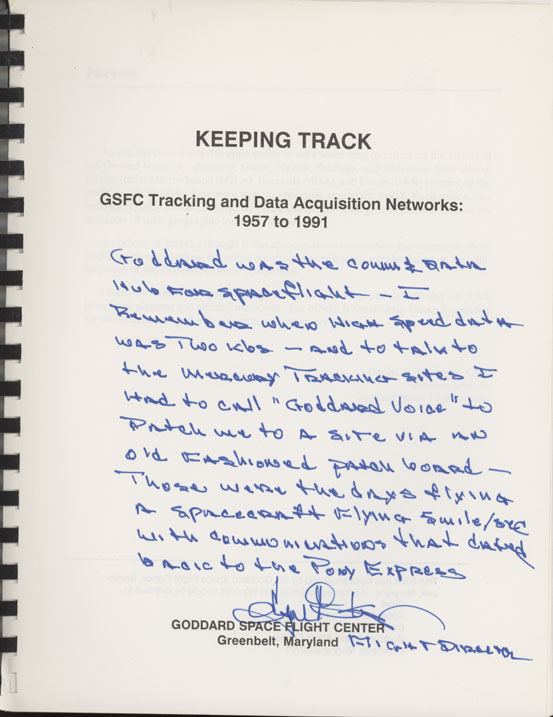 KEEPING TRACK
GSFC Tracking and Data Acquisition Networks:
1957 to 1991
Goddard was the comm & data
Hub for spaceflight - I
Remember when High Speed data
was Two kbs - and to talk to
the Mercury Tracking sites I
Had to call "Goddard Voice" to
Patch me to a site via an
old Fashioned patch board -
Those were the days flying
a spacecraft Flying 5mile/sec
with communications that dated
back to the Pony Express
GODDARD SPACE FLIGHT CENTER
Greenbelt, Maryland Flight Director